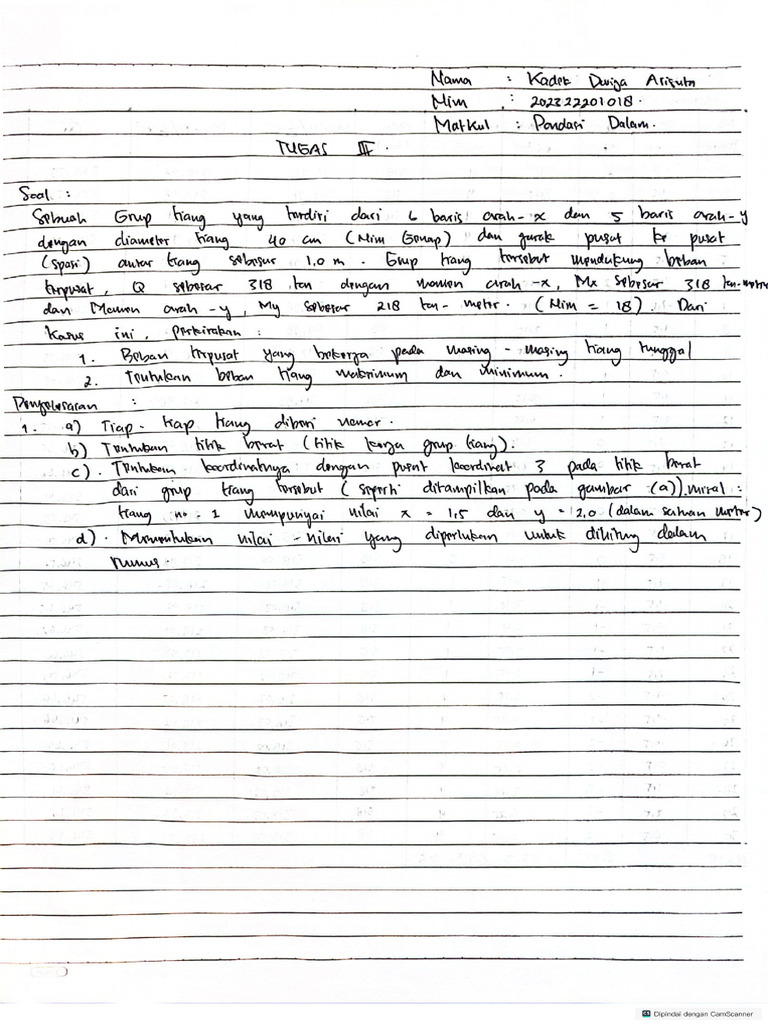 Nama : Kadek Dwiga Arisuta
Nim : 202322201018.
Matkul : Pondasi Dalam.
TUGAS III.
Soal :
Sebuah Grup tiang yang terdiri dari 6 baris arah-x dan 5 baris arah-y
dengan diameter tiang 40 cm (Nim Genap) dan jarak pusat ke pusat
(spasi) antar tiang sebesar 1.0 m. Grup tiang tersebut mendukung beban
terpusat, Q sebesar 318 ton dengan momen arah-x, Mx sebesar 318 ton-meter
dan Momen arah-y, My sebesar 218 ton-meter. (Nim = 18). Dari
Kasus ini, perkirakan :
1. Beban terpusat yang bekerja pada masing-masing tiang tunggal
2. Tentukan beban tiang maksimum dan minimum.
Penyelesaian :
1. a) Tiap-tiap tiang diberi nomor.
b) Tentukan titik berat (titik kerja grup tiang).
c). Tentukan koordinatnya dengan pusat koordinat 3 pada titik berat
dari grup tiang tersebut (seperti ditampilkan pada gambar (a)). misal :
tiang no. 1 mempunyai nilai x = 1,5 dan y = 2,0 (dalam satuan meter)
d). Menentukan nilai-nilai yang diperlukan untuk dihitung dalam
rumus.
Dipindai dengan CamScanner